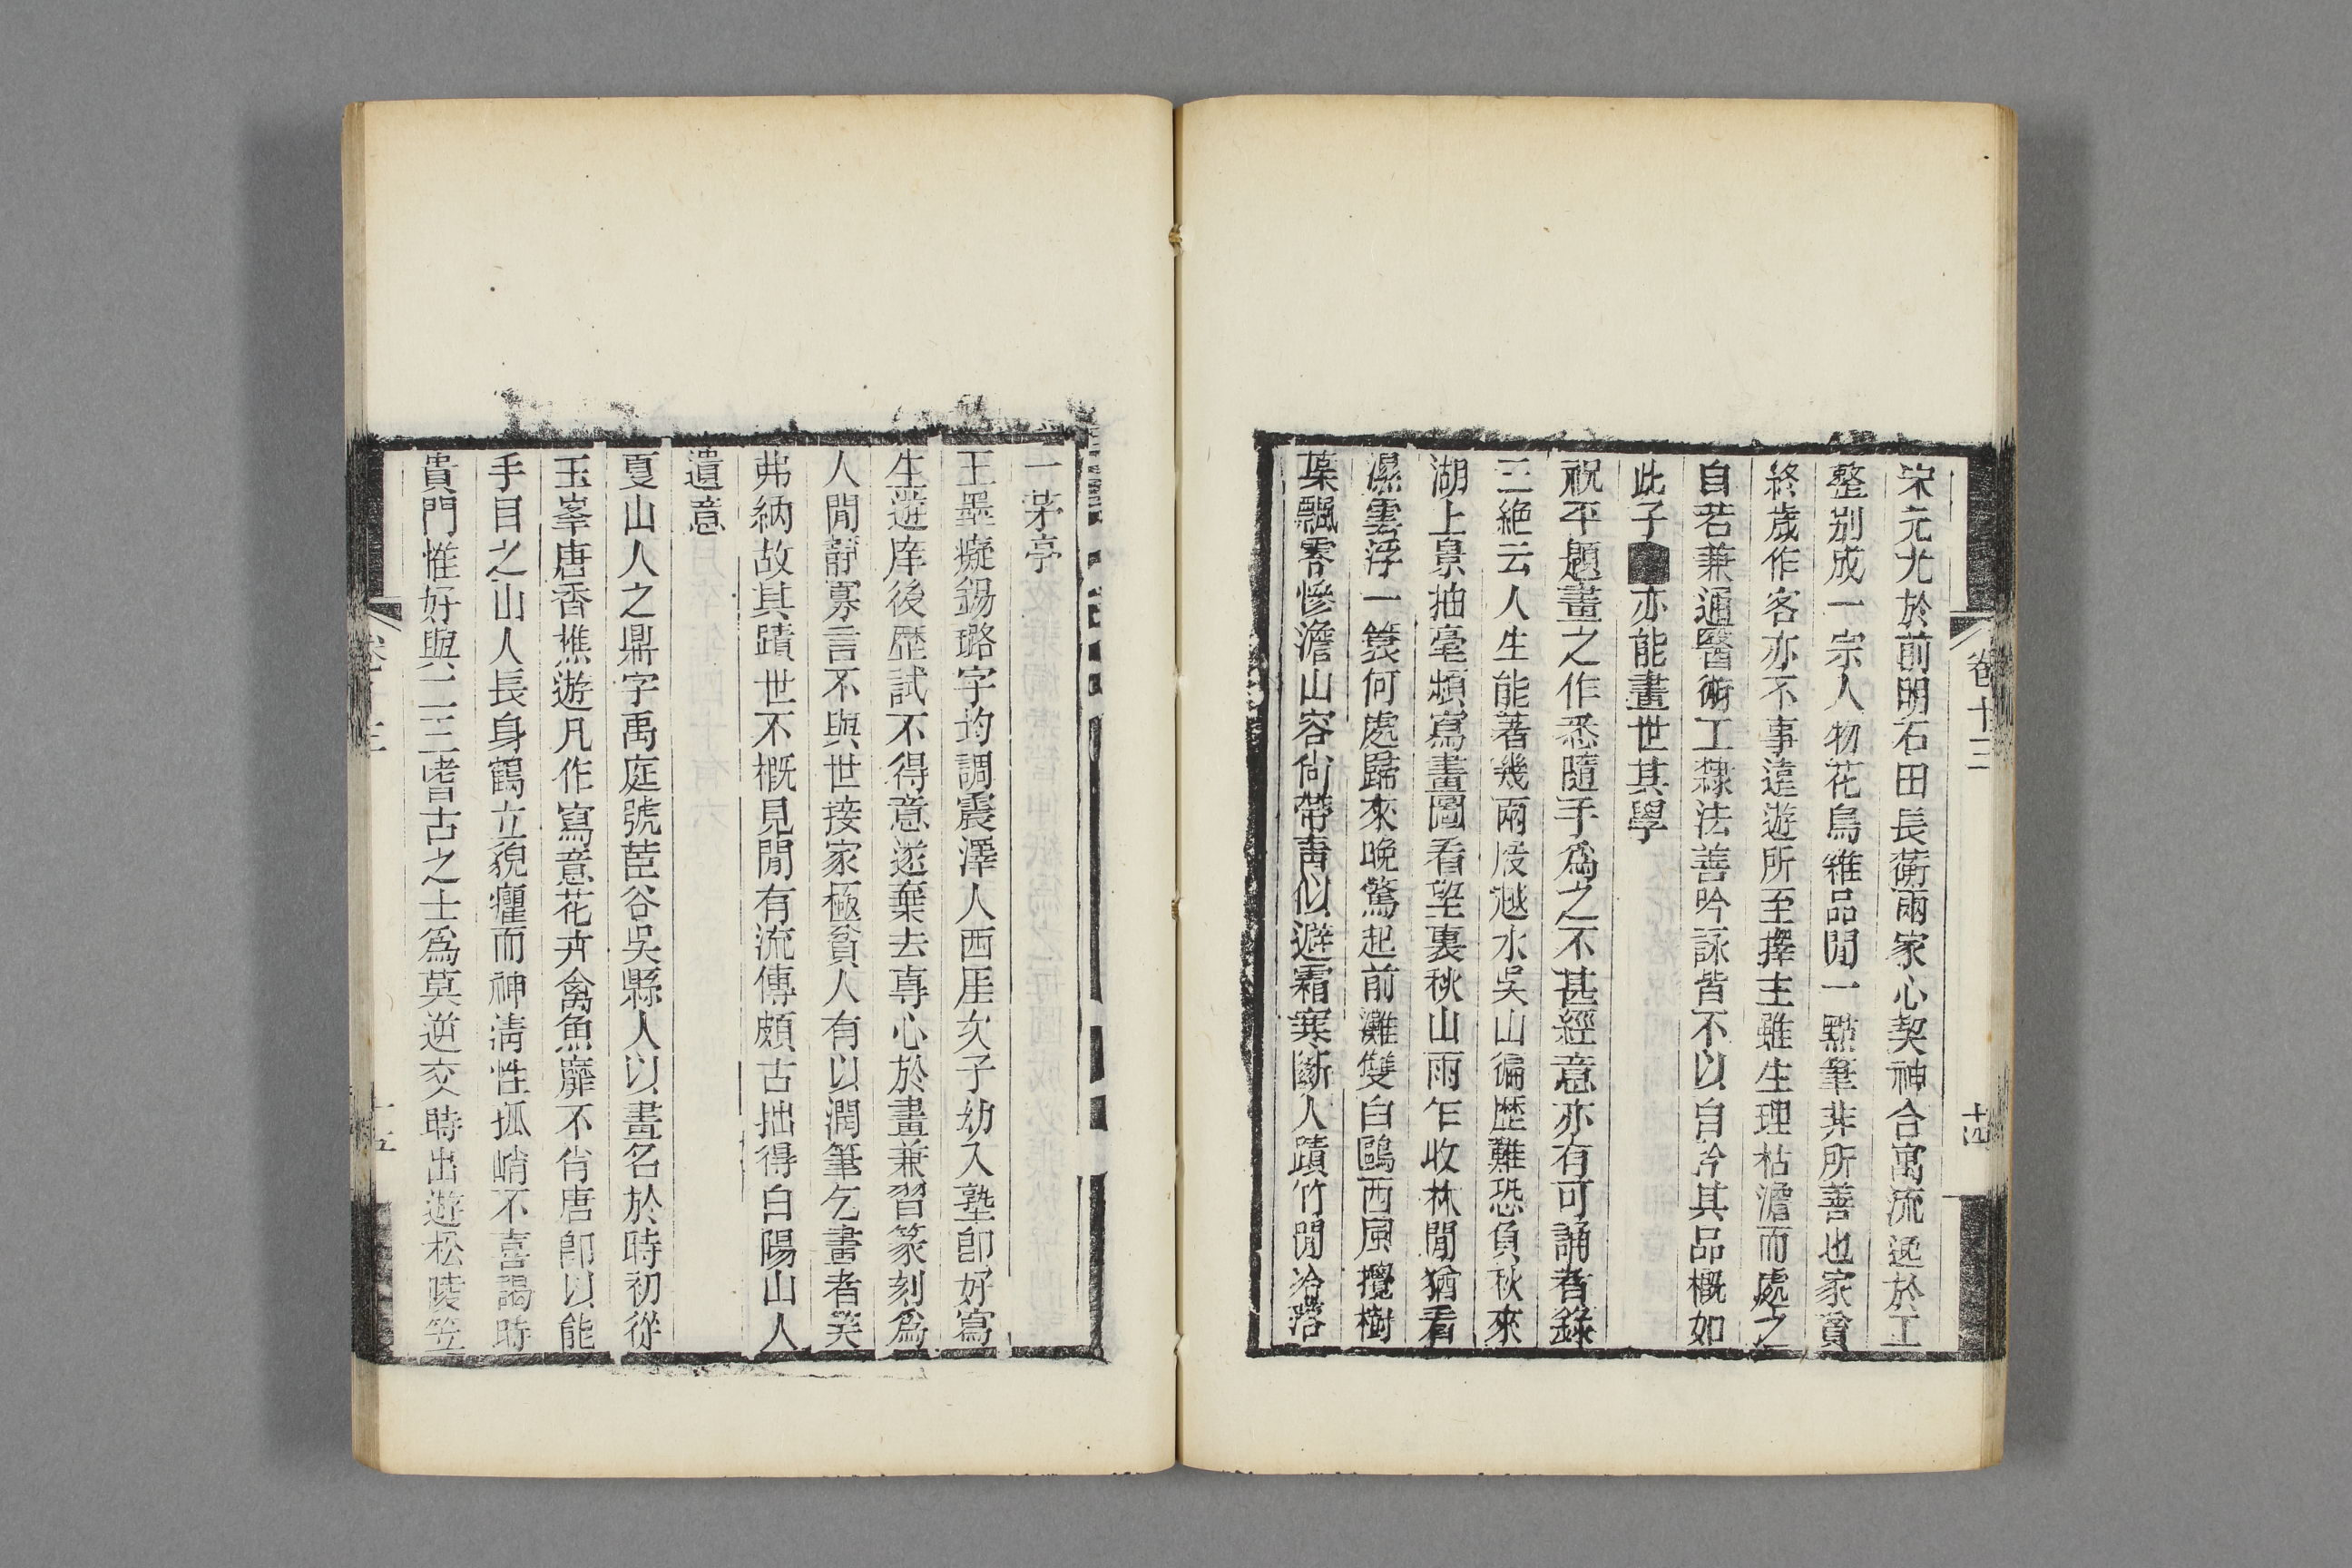 宋元尤於前明石田長蘅兩家心契神合寓流逸於工
整別成一宗人物花鳥雜品閒一點筆非所善也家貧
終歲作客亦不事遠遊所至擇主雖生理枯澹而處之
自若兼通醫術工隸法善吟詠皆不以自矜其品概如
此子亦能畫世其學
祝平題畫之作悉隨手為之不甚經意亦有可誦者錄
三絕云人生能著幾兩屐越水吳山徧歷難恐負秋來
湖上景抽毫頻寫畫圖看望裏秋山雨乍收林閒猶看
濕雲浮一簑何處歸來晚驚起前灘雙白鷗西風攪樹
葉飄零慘澹山容尙帶靑似避霜寒斷人蹟竹閒冷落
卷十三
十四
一茅亭
王墨癡錫璐字均調震澤人西厓次子幼入塾卽好寫
生遊庠後歷試不得意遂棄去專心於畫兼習篆刻爲
人閒靜寡言不與世接家極貧人有以潤筆乞畫者笑
弗納故其蹟世不槪見閒有流傳頗古拙得白陽山人
遺意
夏山人之鼎字禹庭號茝谷吳縣人以畫名於時初從
玉峯唐香樵遊凡作寫意花卉禽魚靡不肖唐卽以能
手目之山人長身鶴立貌癯而神淸性孤峭不喜謁時
貴門惟好與二三嗜古之士爲莫逆交時出遊松陵笠
十五